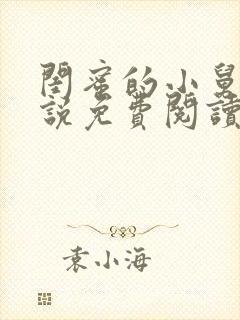 閨蜜的小舅
說免費閱讀
袁小海